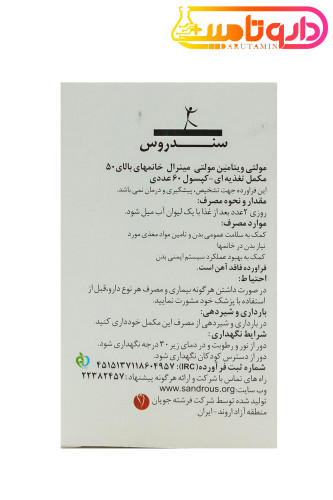 دارو تامین
DARUTAMIN
سندروس
مولتی ویتامین مولتی مینرال خانمهای بالای ۵۰
مکمل تغذیه ای - کپسول ۶۰ عددی
این فراورده جهت تشخیص، پیشگیری و درمان نمی باشد.
مقدار و نحوه مصرف:
روزی ۲ عدد بعد از غذا با یک لیوان آب میل شود.
موارد مصرف:
کمک به سلامت عمومی بدن و تامین مواد مغذی مورد
نیاز بدن در خانمها
کمک به بهبود عملکرد سیستم ایمنی بدن
فراورده فاقد آهن است.
احتیاط:
در صورت داشتن هر گونه بیماری و مصرف هر نوع دارو، قبل از
استفاده با پزشک خود مشورت نمایید.
بارداری و شیردهی:
در بارداری و شیردهی از مصرف این مکمل خودداری کنید.
شرایط نگهداری:
دور از نور و رطوبت و در دمای زیر ۳۰ درجه نگهداری شود.
دور از دسترس کودکان نگهداری شود.
شماره ثبت فرآورده (IRC): ۴۵۱۵۱۳۷۱۱۸۶۰۴۹۵۷
راه های تماس با شرکت و ارائه هر گونه پیشنهاد: ۲۲۳۸۲۴۵۷
وب سایت: www.sandrous.org
تولید شده توسط شرکت فرشته جویان
منطقه آزاد اروند - ایران